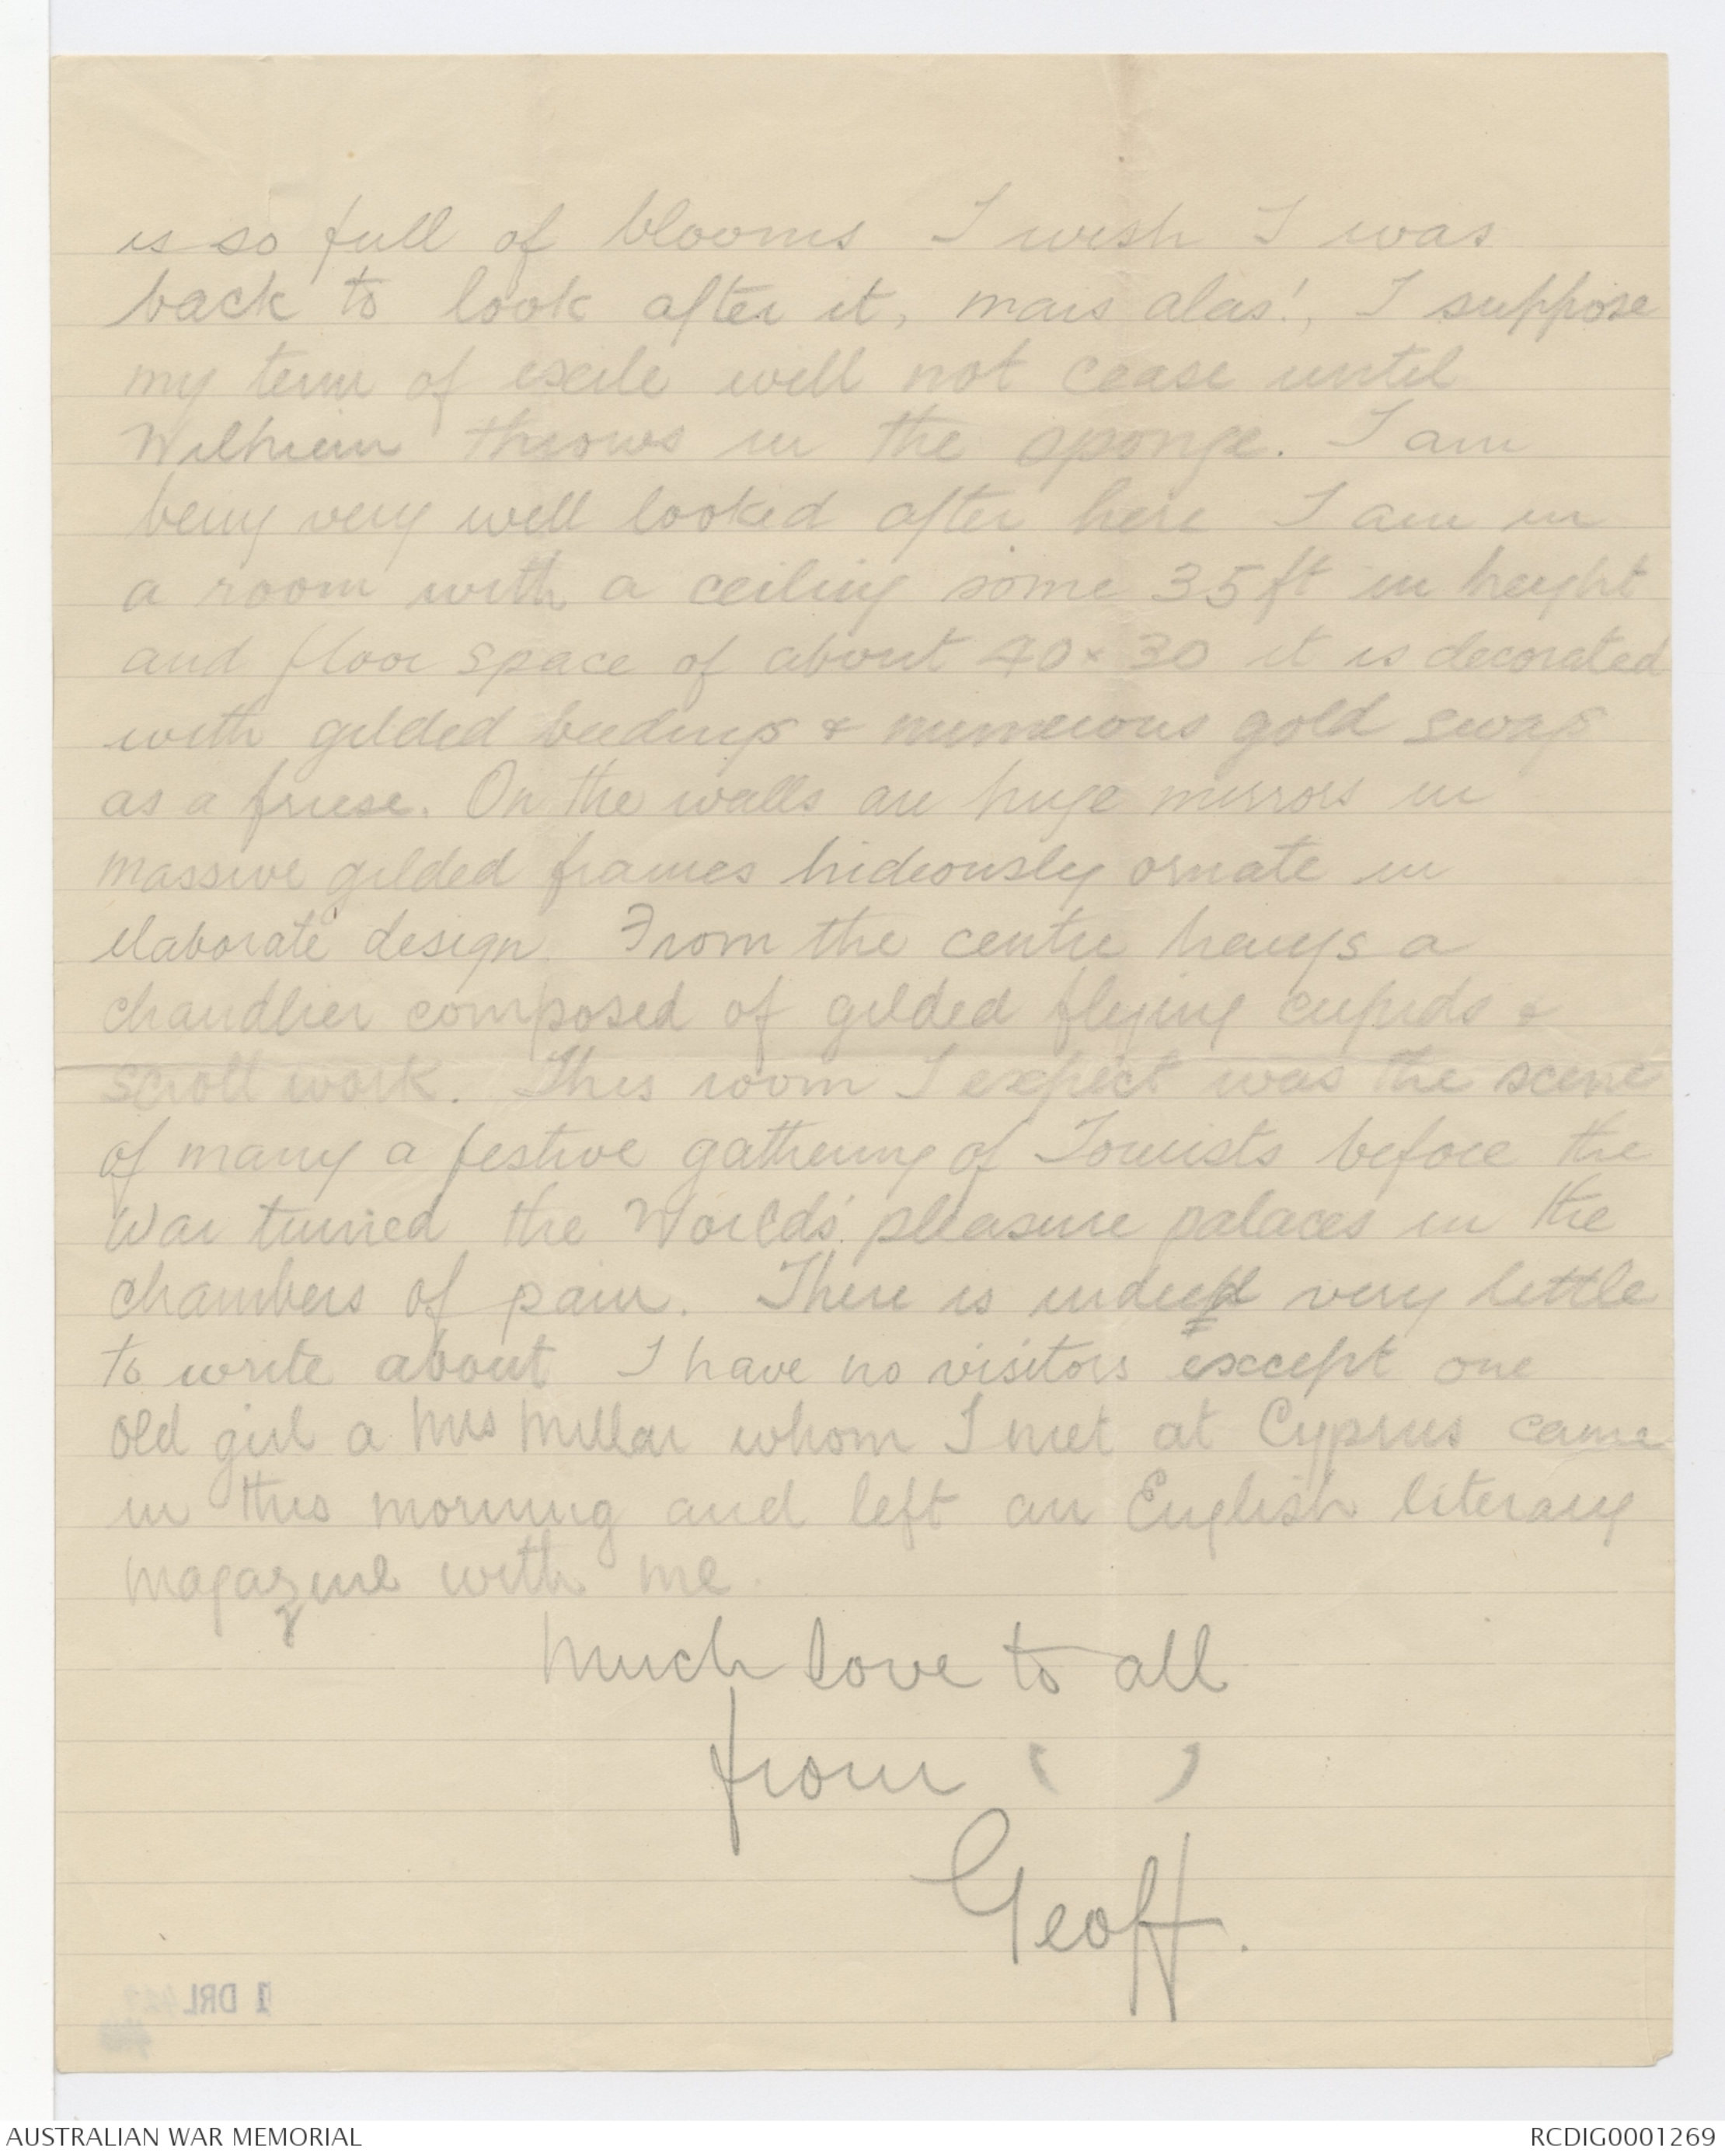 is so full of blooms I wish I was
back to look after it, mais alas!, I suppose
my term of exile will not cease until
Wilheim throws in the sponge. I am
being very well looked after here I am in
a room with a ceiling some 35 ft in height
and floor space of about 40 x 30 it is decorated
with gilded beedings & numerous gold swags
as a friese. On the walls are huge mirrors in
massive gilded frames hideously ornate in
elaborate design. From the centre hangs a
chandlier composed of gilded flying cupids &
scroll work. This room I expect was the scene
of many a festive gathering of Tourists before the
War turned the Worlds' pleasure palaces in the
chambers of pain. There is indeed very little
to write about I have no visitors except one
old girl a Mrs Millar whom I met at Cyprus came
in this morning and left an English literary
magazine with me.
Much love to all
from ( )
Geoff.
1 DRL
AUSTRALIAN WAR MEMORIAL
RCDIG0001269